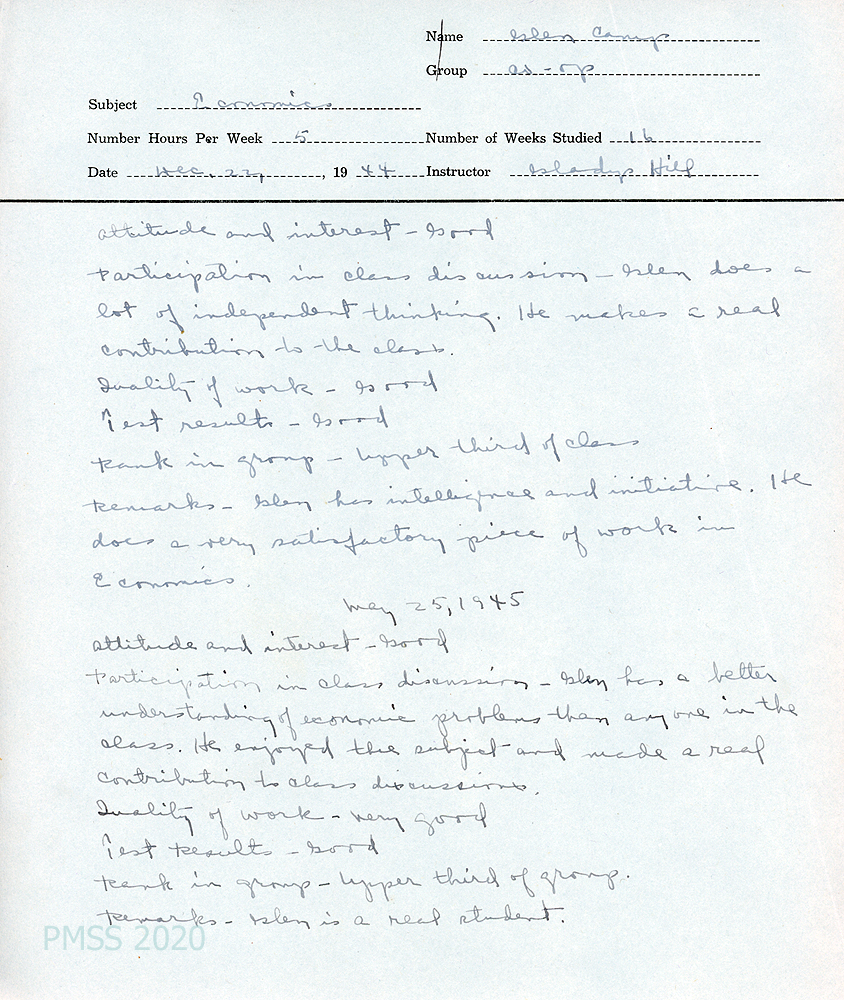 Name Glen Camp
Group Co-op
Subject Economics
Number Hours Per Week 5 Number of Weeks Studied 16
Date Dec. 22, 1944 Instructor Gladys Hill
Attitude and interest - Good
Participation in class discussion - Glen does a
lot of independent thinking. He makes a real
contribution to the class.
Quality of work - Good
Test results - Good
Rank in group - Upper third of class
Remarks - Glen has intelligence and initiative. He
does a very satisfactory piece of work in
Economics.
May 25, 1945
Attitude and interest - Good
Participation in class discussion - Glen has a better
understanding of economic problems than anyone in the
class. He enjoyed the subject and made a real
contribution to class discussions.
Quality of work - Very good
Test Results - Good
Rank in group - Upper third of group.
Remarks - Glen is a real student.
PMSS 2020